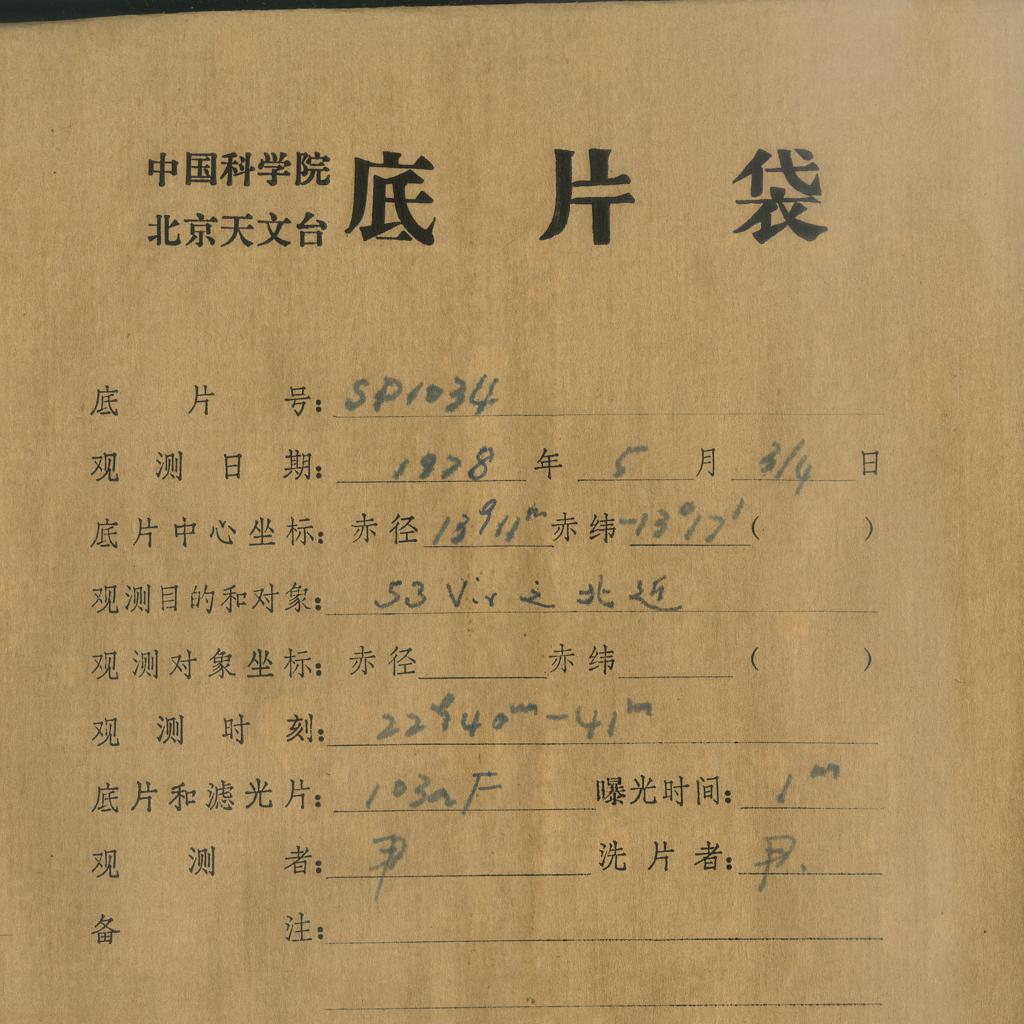 中国科学院
北京天文台
底片袋
底片号：SP1034
观测日期：1978年5月3/4日
底片中心坐标：赤径13h11m赤纬-13°17′（ ）
观测目的和对象：53 Vir 之北近
观测对象坐标：赤径 赤纬 （ ）
观测时刻：22h40m-41m
底片和滤光片：103aF 曝光时间：1m
观测者： 洗片者：
备注：